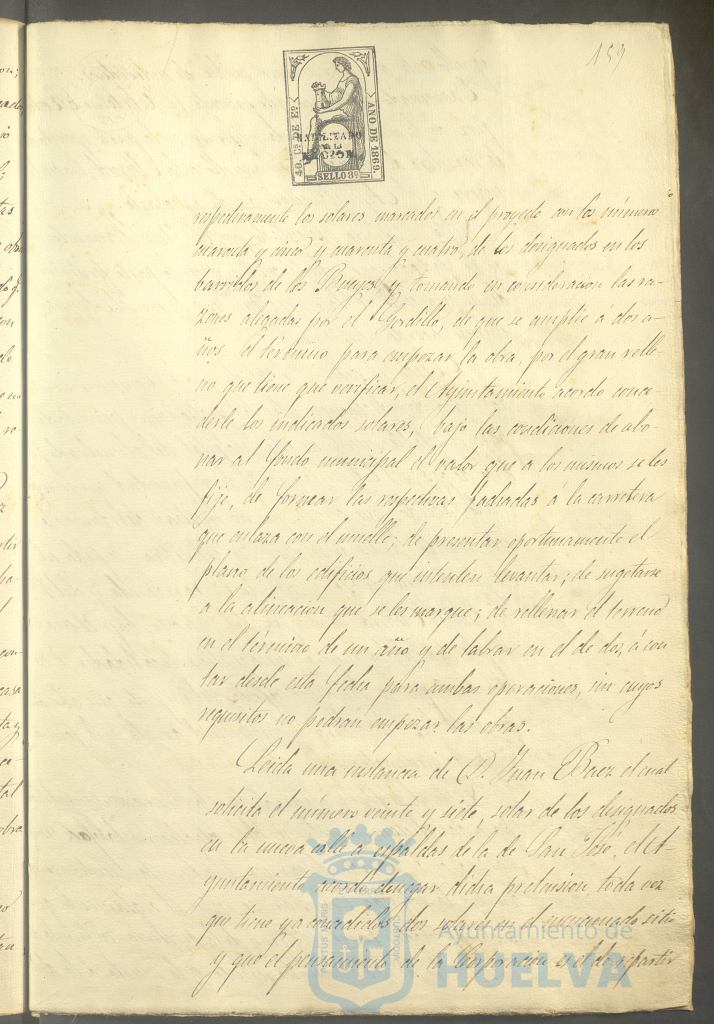 159
40 Cs DE Eo
AÑO DE 1869.
HABILITADO
POR LA
NACION.
SELLO 3º
respectivamente los solares marcados en el proyecto con los números
cuarenta y cinco y cuarenta y cuatro, de los designados en los
barridos de los y tomando en consideracion las ra-
zones alegadas por el Gordillo, de que se amplie á dos a-
ños el término para empezar la obra, por el gran relle-
no que tiene que verificar, el Ayuntamiento acordó conce-
derle los indicados solares, bajo las condiciones de abo-
nar al fondo municipal el valor que a los mismos se les
fije, de formar las respectivas fachadas á la carretera
que enlaza con el muelle; de presentar oportunamente el
plano de los edificios que intenten levantar; de sugetarse
a la alineacion que se les marque; de rellenar el terreno
en el término de un año y de labrar en el de dos, á con
tar desde esta fecha para ambas operaciones, sin cuyos
requisitos no podrán empezar las obras.
Leida una instancia de D. Juan Baez el cual
solicita el número veinte y siete, solar de los designados
en la nueva calle a espaldas de la de San José, el A-
yuntamiento acordó denegar dicha pretension toda vez
que tiene ya concedidos dos solares en el mencionado sitio
y que el pensamiento de la Corporacion es el de repartir
Ayuntamiento de
HUELVA